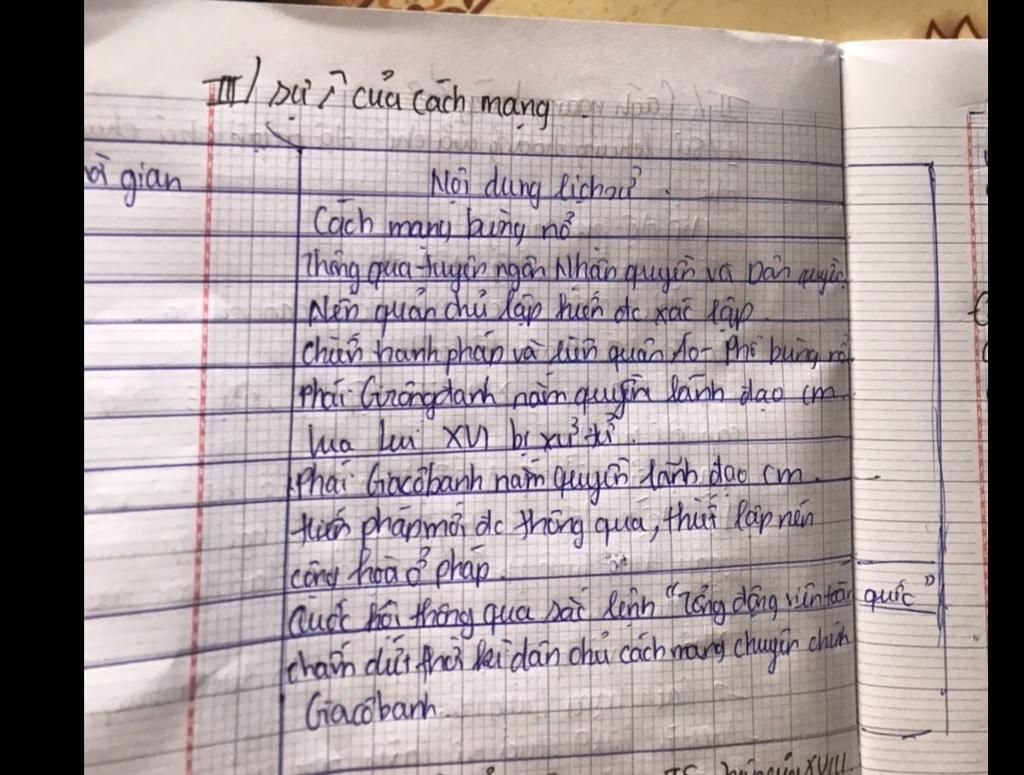 III/ Dự í của cách mạng.
ời gian
Nội dung lịch sử.
Cách mạng bùng nổ
Thông qua tuyên ngôn Nhân quyền và Dân quyền
Nền quân chủ lập hiến đc xác lập.
Chiến tranh pháp và liên quân Áo - Phổ bùng nổ
Phái Girôngđanh nắm quyền lãnh đạo cm.
Vua Lui XVI bị xử tử.
Phái Giacôbanh nắm quyền lãnh đạo cm.
Hiến pháp mới đc thông qua, thiết lập nền
cộng hoà ở pháp.
Quốc hội thông qua sắc lệnh "Tổng động viên toàn quốc"
chấm dứt thời kì dân chủ cách mạng chuyên chính
Giacôbanh.
XVIII.